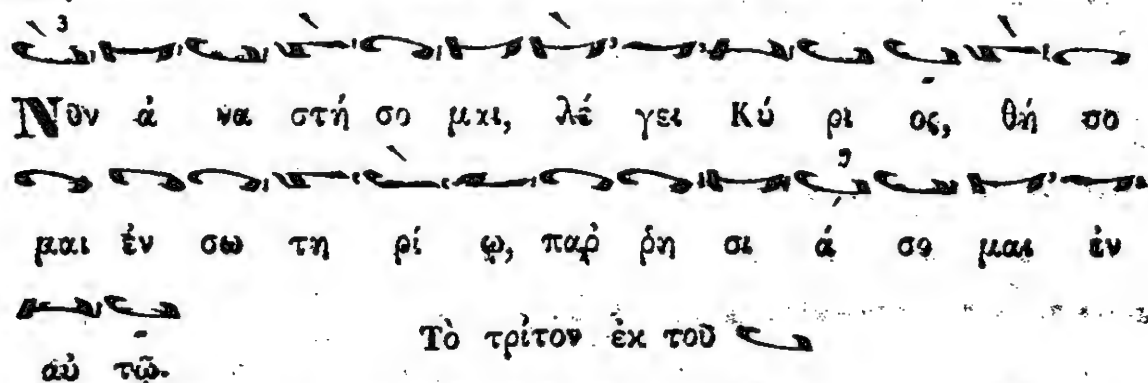 Νῦν ἀ να στή σο μαι, λέ γει Κύ ρι ος, θή σο
μαι ἐν σω τη ρί ῳ, παῤ ῥη σι ά σο μαι ἐν
αὐ τῷ.
Τὸ τρίτον ἐκ τοῦ